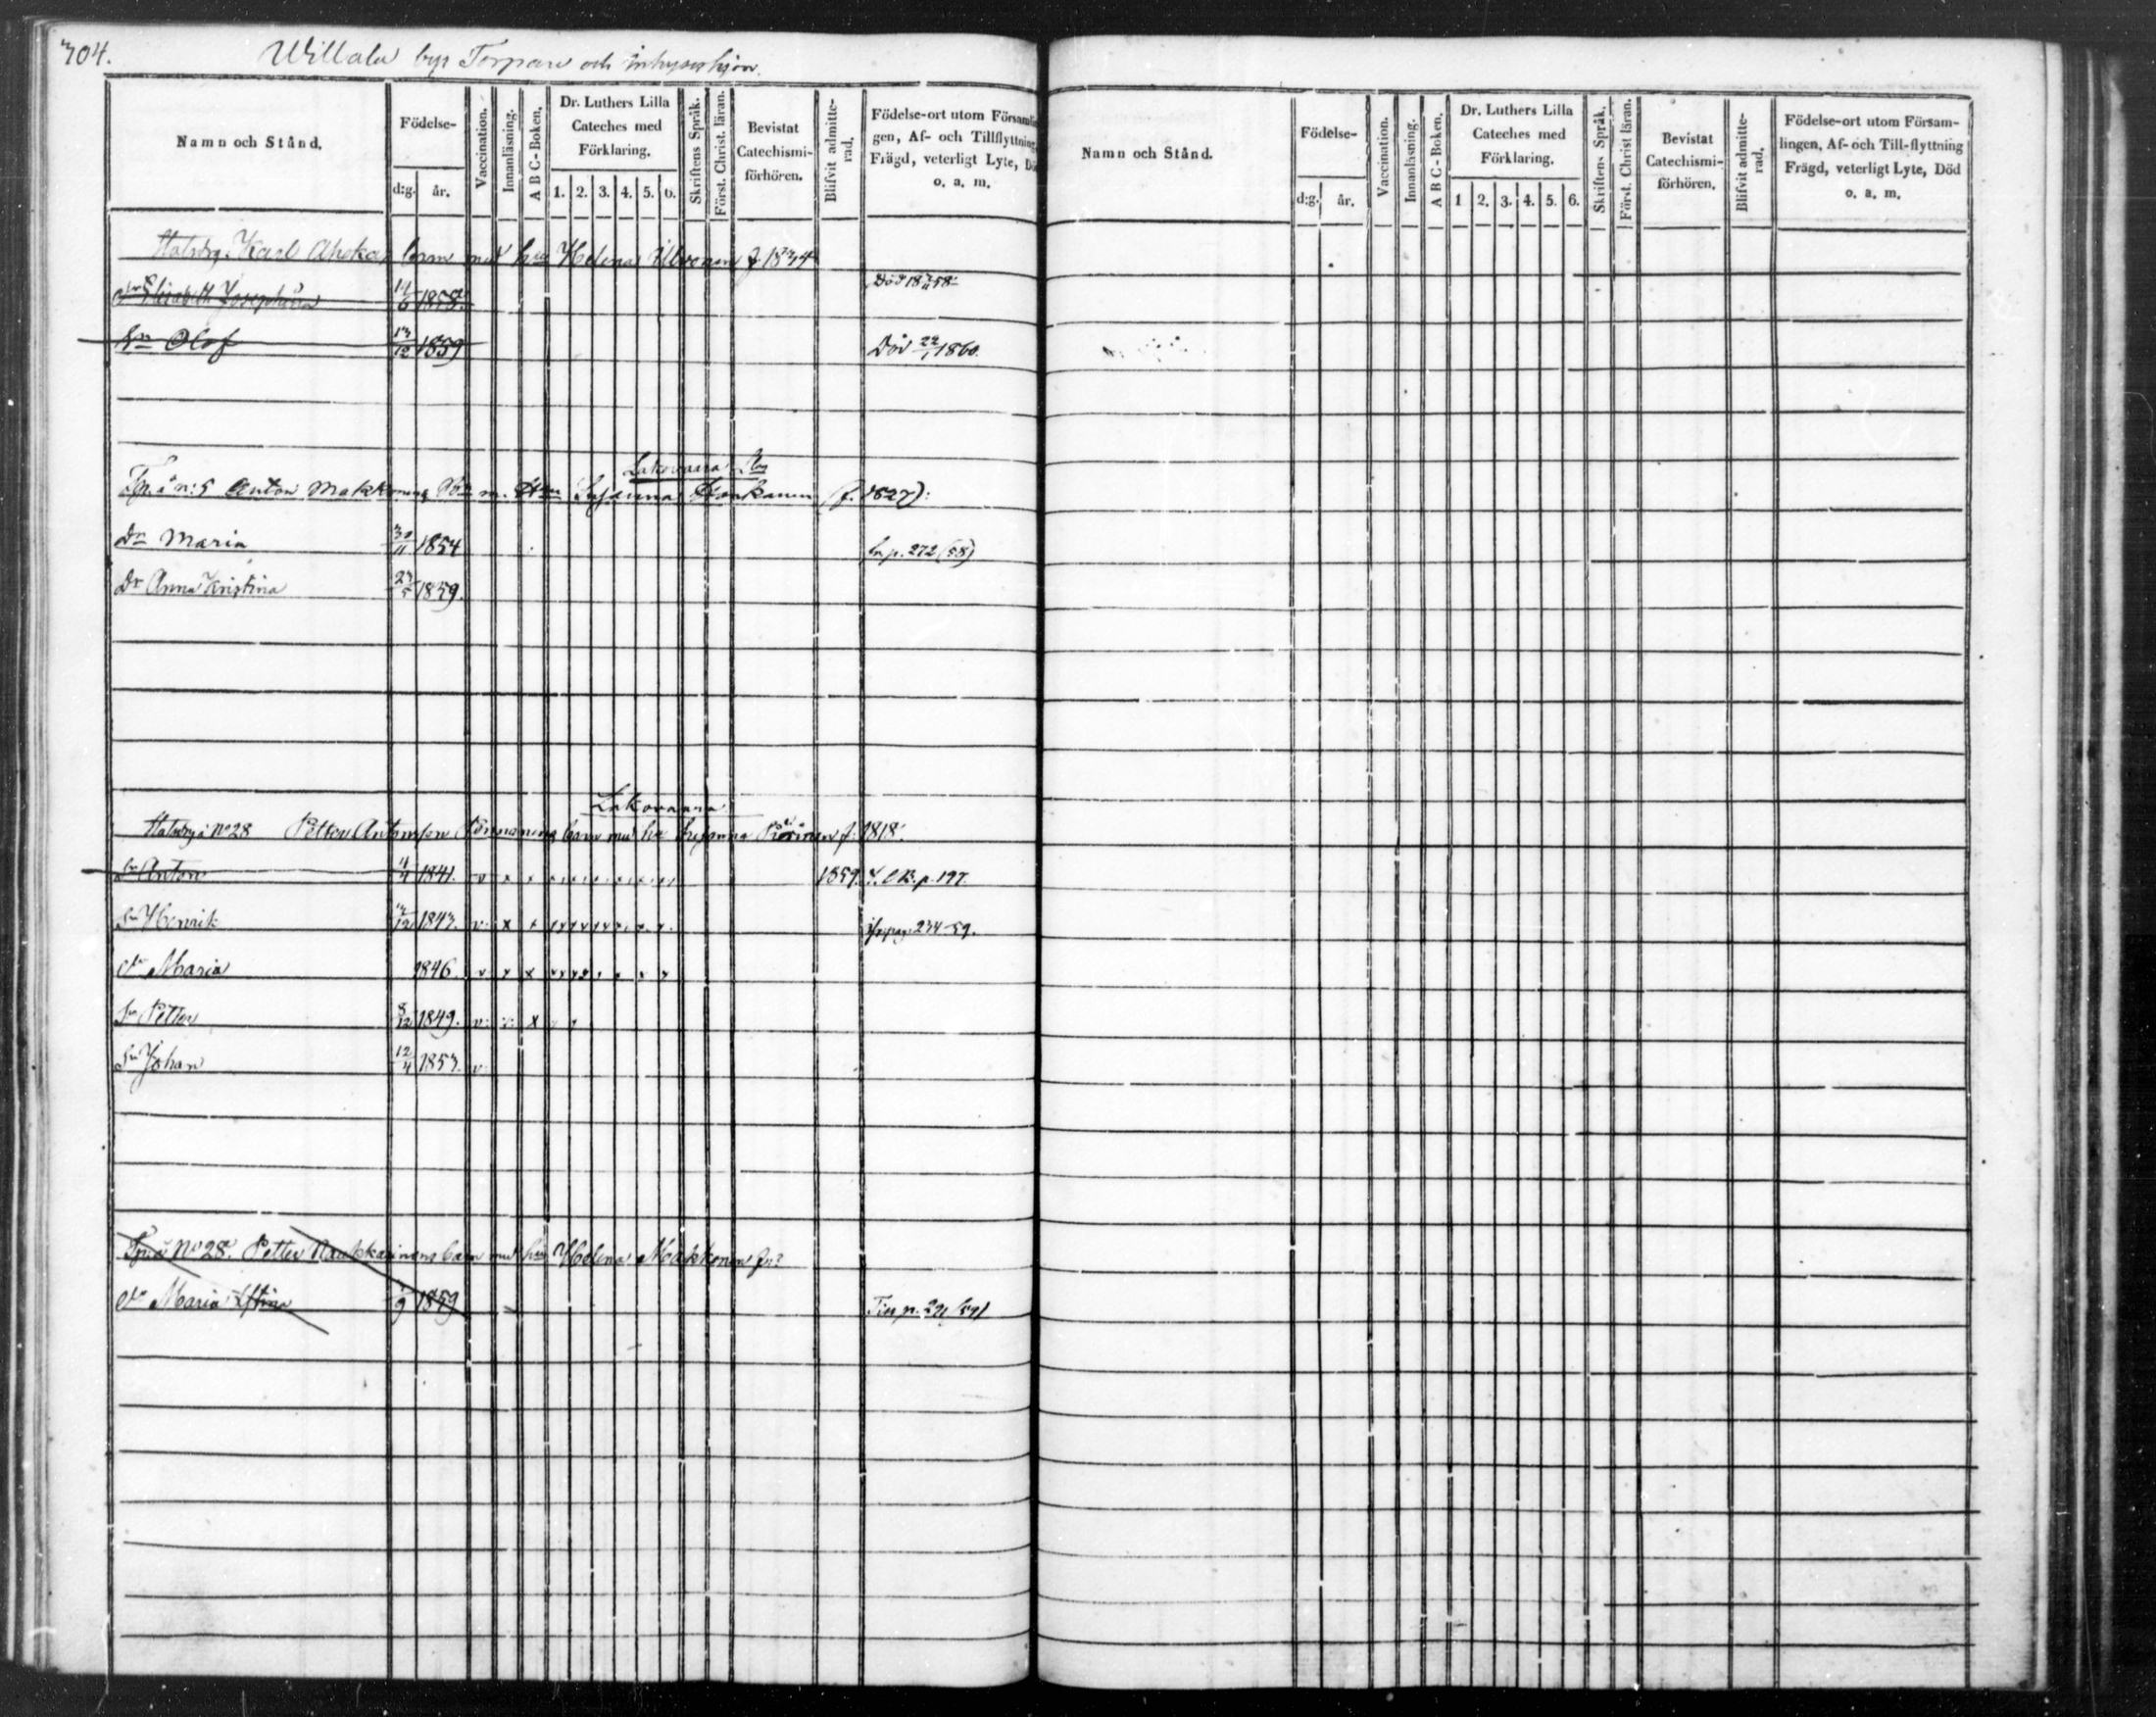 304.
Willala bys Torpare och inhyseshjon.
Namn och Stånd.
Födelse-
d:g. år.
Vaccination.
Innanläsning.
A B C - Boken.
Dr. Luthers Lilla
Cateches med
Förklaring.
1. 2. 3. 4. 5. 6.
Skriftens Språk.
Först. Christ. läran.
Bevistat
Catechismi-
förhören.
Blifvit admitte-
rad.
Födelse-ort utom Församlin
gen, Af- och Tillflyttning
Frägd, veterligt Lyte, Dö
o. a. m.
Karl Ahokas barn med hu Helena Ulvonen f. 1834
dr Elisabeth Josephina 14/6 1858. Död 18 58
Sn Olof 13/12 1859 Död 22/1 1860.
Lakovaara
Tp. å n:5 Anton Makkonens Bn m. Hu Susanna (f. 1827):
Dr Maria 30/11 1854 fr. p. 272 (58)
Dr Anna Kristina 23/5 1859.
Lakovaara
å No 28 Petter Antonsson barn med hu Susanna f. 1818.
Sn Anton 4/4 1841. v x x 1859. p. 197.
Sn Henrik 13/12 1843. v. x x pag. 234-59.
dr Maria 1846. v x x
Sn Petter 8/12 1849. v. x
Sn Johan 12/4 1853. v.
Tp. å No 28. Petter Naukkarinens barn med hu Helena Makkonen
dr Maria Stina 9 1859 p. 291 (59)
Namn och Stånd.
Födelse-
d:g. år.
Vaccination.
Innanläsning.
A B C - Boken.
Dr. Luthers Lilla
Cateches med
Förklaring.
1 2. 3. 4. 5. 6.
Skriftens Språk.
Först. Christ läran.
Bevistat
Catechismi-
förhören.
Blifvit admitte-
rad.
Födelse-ort utom Försam-
lingen, Af- och Till-flyttning
Frägd, veterligt Lyte, Död
o. a. m.